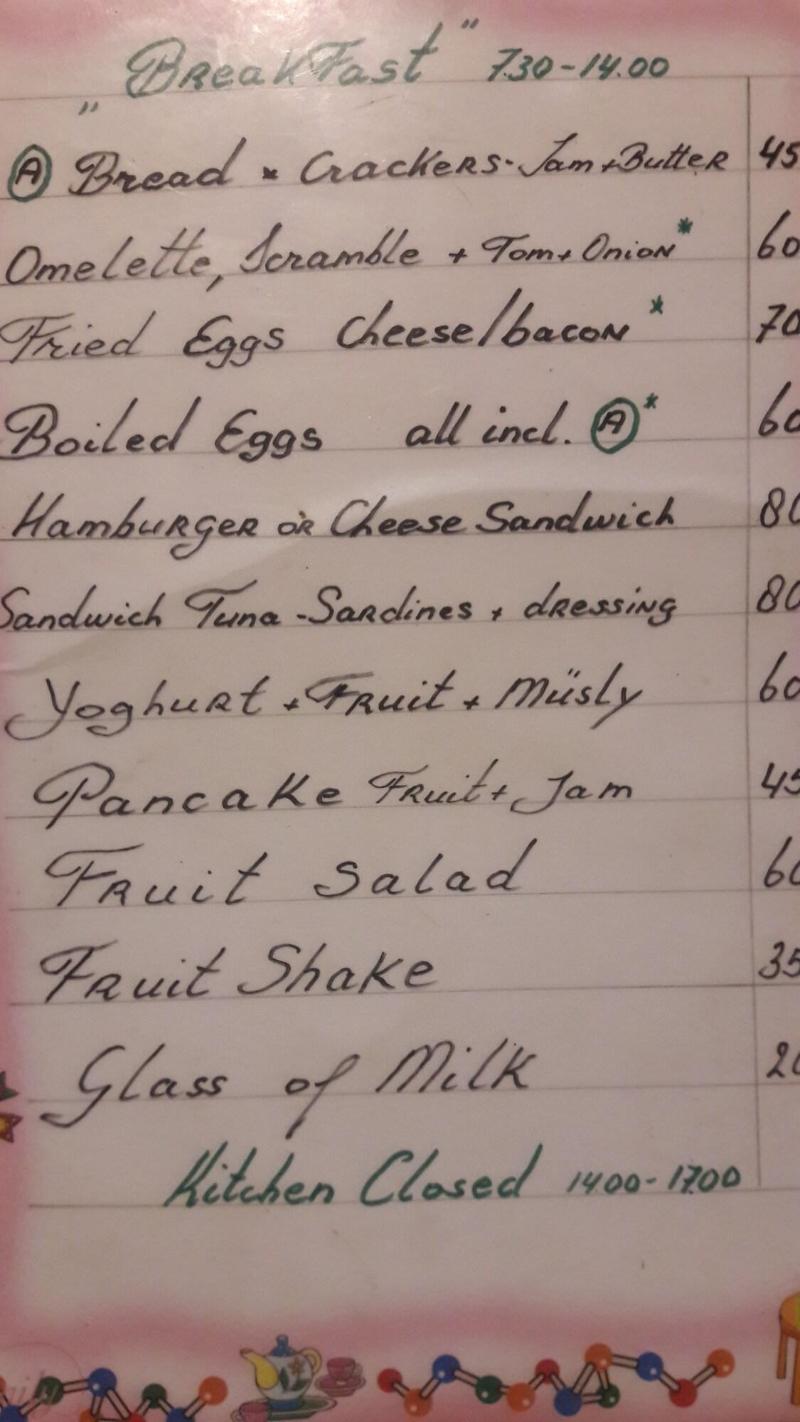 „BreakFast" 7.30-14.00
Ⓐ Bread * Crackers - Jam + Butter 45
Omelette, Scramble + Tom + Onion * 60
Fried Eggs Cheese/bacon * 70
Boiled Eggs all incl. Ⓐ * 60
Hamburger or Cheese Sandwich 80
Sandwich Tuna - Sardines + dressing 80
Yoghurt + Fruit + Müsly 60
Pancake Fruit + Jam 45
Fruit Salad 60
Fruit Shake 35
Glass of Milk 20
Kitchen Closed 1400-17.00